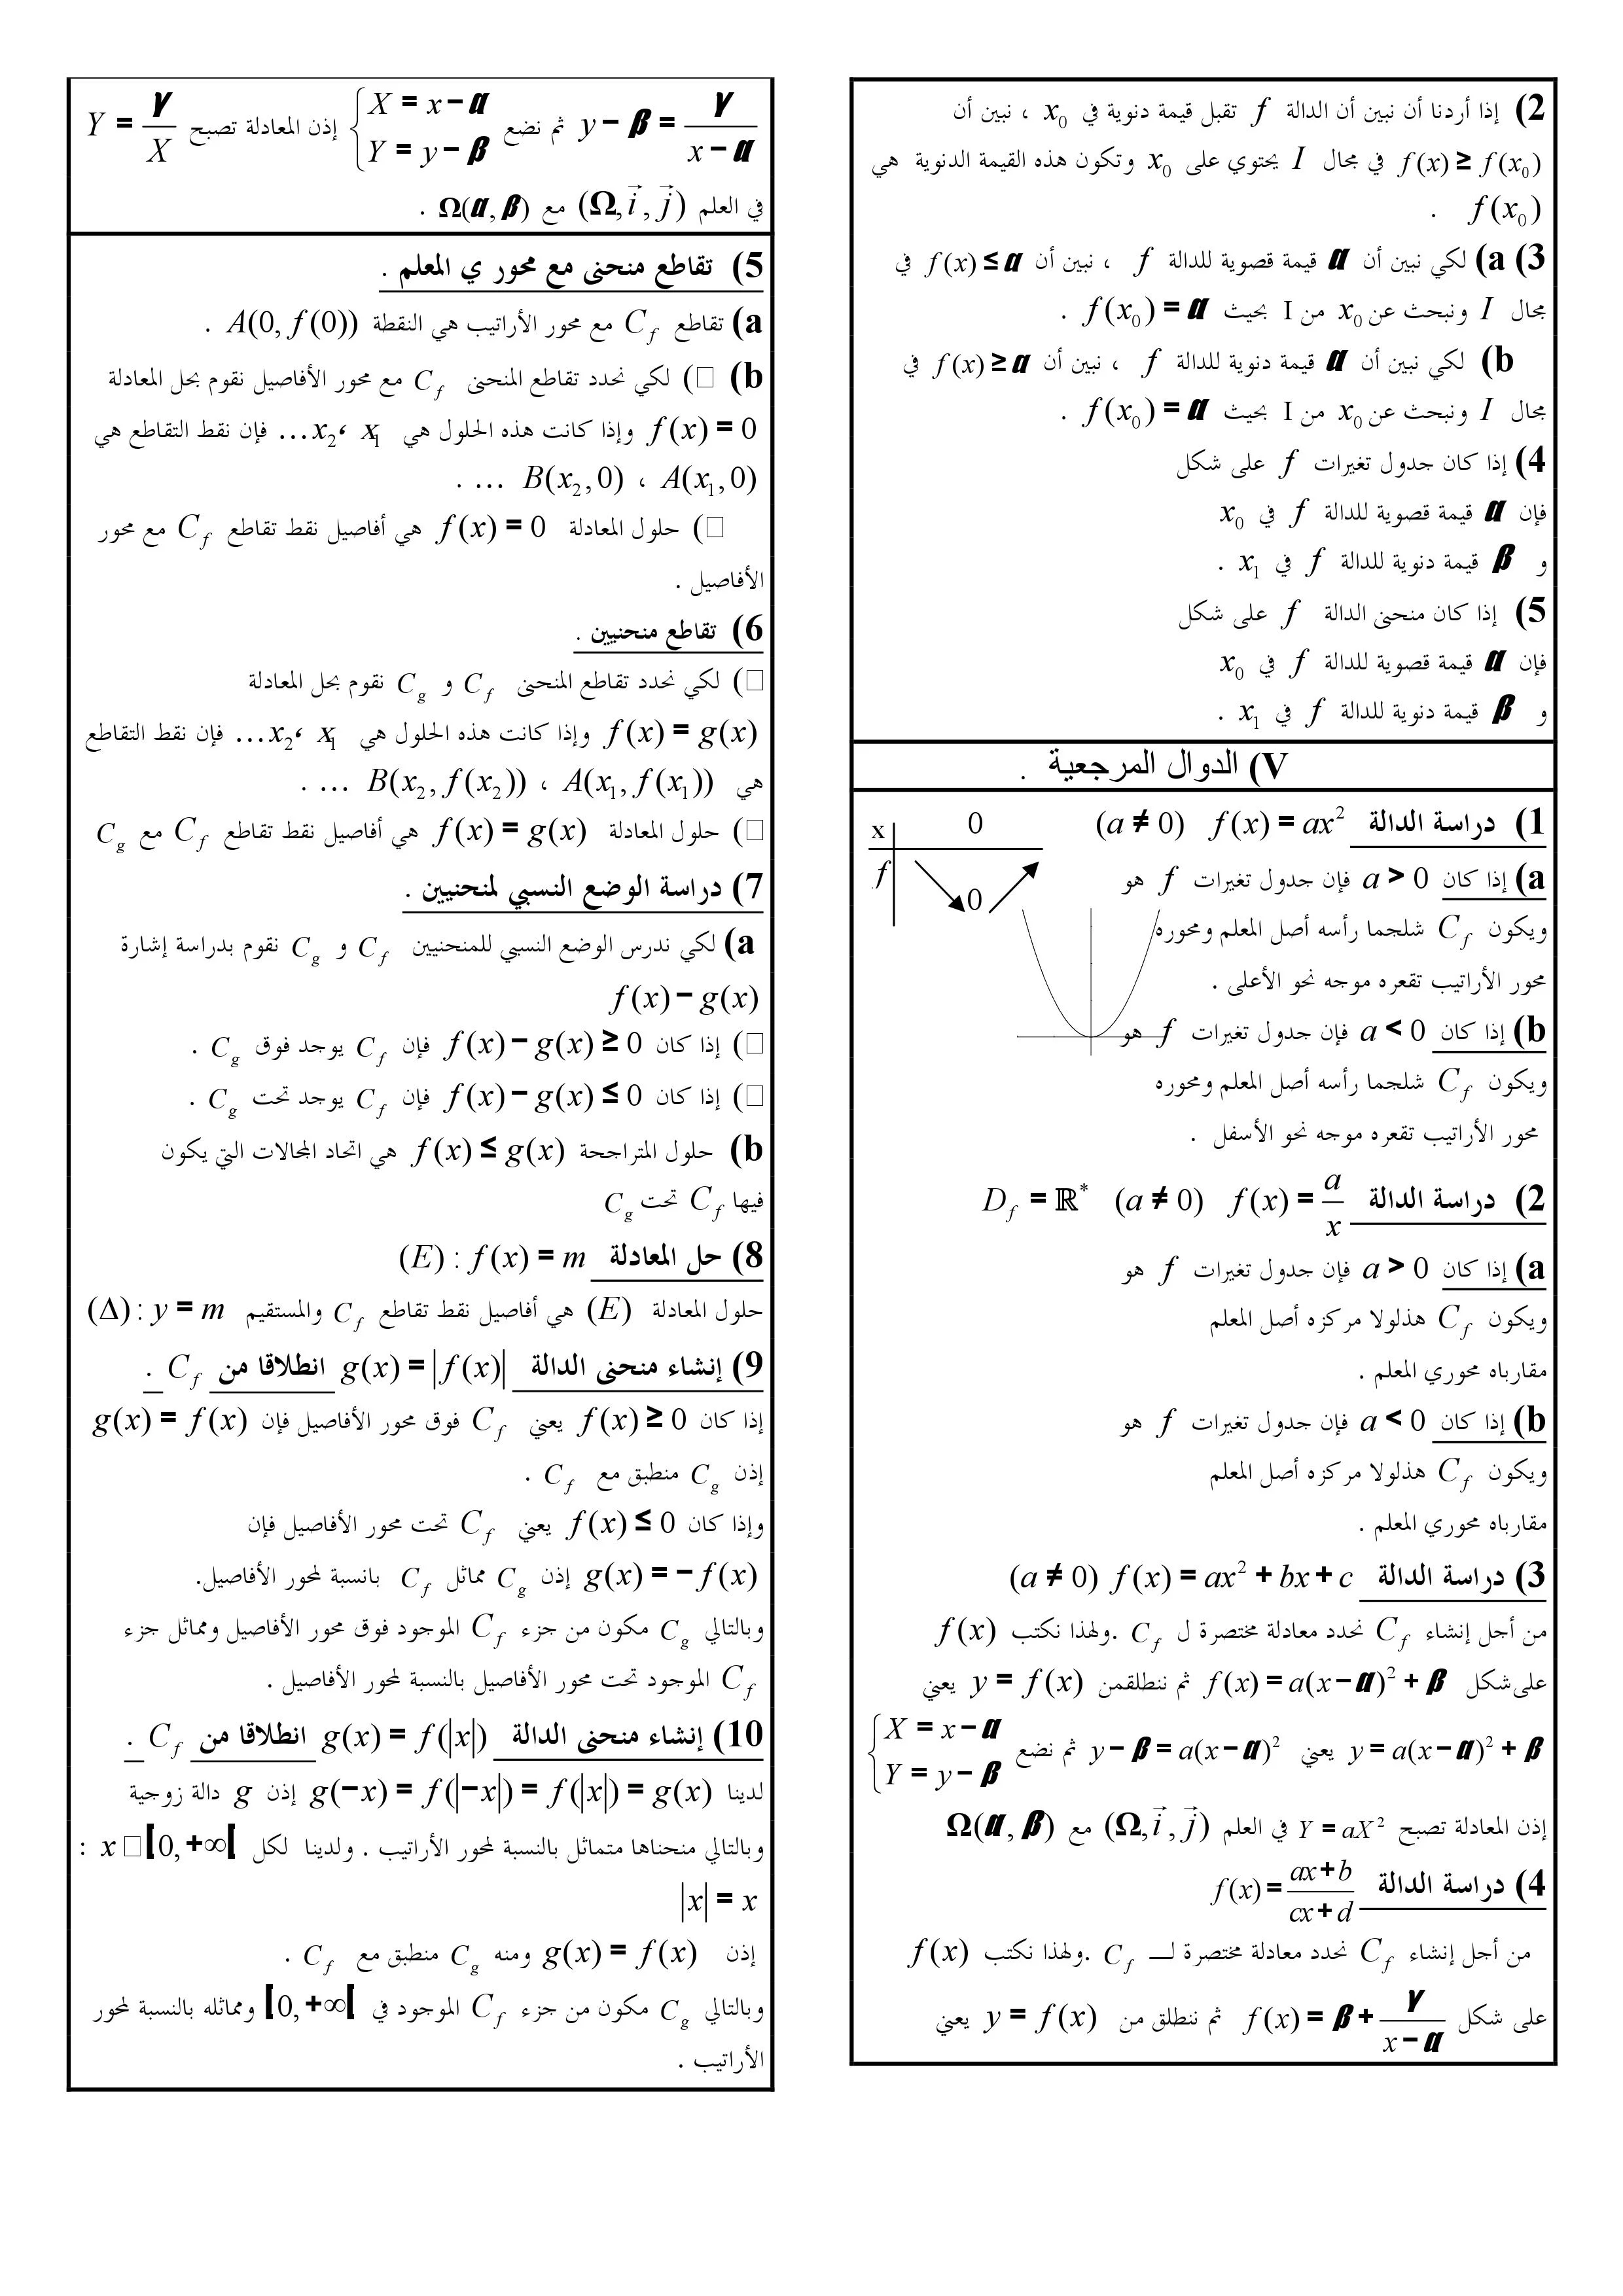 2) إذا أردنا أن نبين أن الدالة f تقبل قيمة دنوية في x₀ ، نبين أن
f(x) ≥ f(x₀) في مجال I يحتوي على x₀ وتكون هذه القيمة الدنوية هي
f(x₀) .
3) a) لكي نبين أن α قيمة قصوية للدالة f ، نبين أن f(x) ≤ α في
مجال I ونبحث عن x₀ من I بحيث f(x₀) = α .
b) لكي نبين أن α قيمة دنوية للدالة f ، نبين أن f(x) ≥ α في
مجال I ونبحث عن x₀ من I بحيث f(x₀) = α .
4) إذا كان جدول تغيرات f على شكل
فإن α قيمة قصوية للدالة f في x₀
و β قيمة دنوية للدالة f في x₁ .
5) إذا كان منحنى الدالة f على شكل
فإن α قيمة قصوية للدالة f في x₀
و β قيمة دنوية للدالة f في x₁ .
V) الدوال المرجعية .
1) دراسة الدالة f(x) = ax² (a ≠ 0)
x 0
f 0
a) إذا كان a > 0 فإن جدول تغيرات f هو
ويكون C_f شلجما رأسه أصل المعلم ومحوره
محور الأراتيب تقعره موجه نحو الأعلى .
b) إذا كان a < 0 فإن جدول تغيرات f هو
ويكون C_f شلجما رأسه أصل المعلم ومحوره
محور الأراتيب تقعره موجه نحو الأسفل .
2) دراسة الدالة f(x) = a/x (a ≠ 0) D_f = ℝ*
a) إذا كان a > 0 فإن جدول تغيرات f هو
ويكون C_f هذلولا مركزه أصل المعلم
مقارباه محوري المعلم .
b) إذا كان a < 0 فإن جدول تغيرات f هو
ويكون C_f هذلولا مركزه أصل المعلم
مقارباه محوري المعلم .
3) دراسة الدالة f(x) = ax² + bx + c (a ≠ 0)
من أجل إنشاء C_f نحدد معادلة مختصرة ل C_f .ولهذا نكتب f(x)
على شكل f(x) = a(x − α)² + β ثم ننطلقمن y = f(x) يعني
y = a(x − α)² + β يعني y − β = a(x − α)² ثم نضع {X = x − α
Y = y − β
إذن المعادلة تصبح Y = aX² في العلم (Ω, i⃗, j⃗) مع Ω(α, β)
4) دراسة الدالة f(x) = (ax + b)/(cx + d)
من أجل إنشاء C_f نحدد معادلة مختصرة لـــ C_f .ولهذا نكتب f(x)
على شكل f(x) = β + γ/(x − α) ثم ننطلق من y = f(x) يعني
y − β = γ/(x − α) ثم نضع {X = x − α
Y = y − β إذن المعادلة تصبح Y = γ/X
في العلم (Ω, i⃗, j⃗) مع Ω(α, β) .
5) تقاطع منحنى مع محور ي المعلم .
a) تقاطع C_f مع محور الأراتيب هي النقطة A(0, f(0)) .
b) □) لكي نحدد تقاطع المنحنى C_f مع محور الأفاصيل نقوم بحل المعادلة
f(x) = 0 وإذا كانت هذه الحلول هي x₁ ،x₂... فإن نقط التقاطع هي
A(x₁,0) ، B(x₂,0) ... .
□) حلول المعادلة f(x) = 0 هي أفاصيل نقط تقاطع C_f مع محور
الأفاصيل .
6) تقاطع منحنيين .
□) لكي نحدد تقاطع المنحنى C_f و C_g نقوم بحل المعادلة
f(x) = g(x) وإذا كانت هذه الحلول هي x₁ ،x₂... فإن نقط التقاطع
هي A(x₁, f(x₁)) ، B(x₂, f(x₂)) ... .
□) حلول المعادلة f(x) = g(x) هي أفاصيل نقط تقاطع C_f مع C_g
7) دراسة الوضع النسبي لمنحنيين .
a) لكي ندرس الوضع النسبي للمنحنيين C_f و C_g نقوم بدراسة إشارة
f(x) − g(x)
□) إذا كان f(x) − g(x) ≥ 0 فإن C_f يوجد فوق C_g .
□) إذا كان f(x) − g(x) ≤ 0 فإن C_f يوجد تحت C_g .
b) حلول المتراجحة f(x) ≤ g(x) هي اتحاد المجالات التي يكون
فيها C_f تحت C_g
8) حل المعادلة (E) : f(x) = m
حلول المعادلة (E) هي أفاصيل نقط تقاطع C_f والمستقيم (Δ) : y = m
9) إنشاء منحنى الدالة g(x) = |f(x)| انطلاقا من C_f .
إذا كان f(x) ≥ 0 يعني C_f فوق محور الأفاصيل فإن g(x) = f(x)
إذن C_g منطبق مع C_f .
وإذا كان f(x) ≤ 0 يعني C_f تحت محور الأفاصيل فإن
g(x) = −f(x) إذن C_g مماثل C_f بانسبة لمحور الأفاصيل.
وبالتالي C_g مكون من جزء C_f الموجود فوق محور الأفاصيل ومماثل جزء
C_f الموجود تحت محور الأفاصيل بالنسبة لمحور الأفاصيل .
10) إنشاء منحنى الدالة g(x) = f(|x|) انطلاقا من C_f .
لدينا g(−x) = f(|−x|) = f(|x|) = g(x) إذن g دالة زوجية
وبالتالي منحناها متماثل بالنسبة لمحور الأراتيب . ولدينا لكل x □ [0, +∞[ :
|x| = x
إذن g(x) = f(x) ومنه C_g منطبق مع C_f .
وبالتالي C_g مكون من جزء C_f الموجود في [0, +∞[ ومماثله بالنسبة لمحور
الأراتيب .